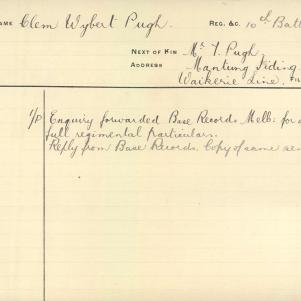 NAME Clem Wybert Pugh. REG. &C. 10th Batt
NEXT OF KIN Mr T. Pugh,
ADDRESS Mantung Siding.
Waikerie Line.
Enquiry forwarded Base Records Melb: for
full regimental particulars.
Reply from Base Records. Copy of same sen